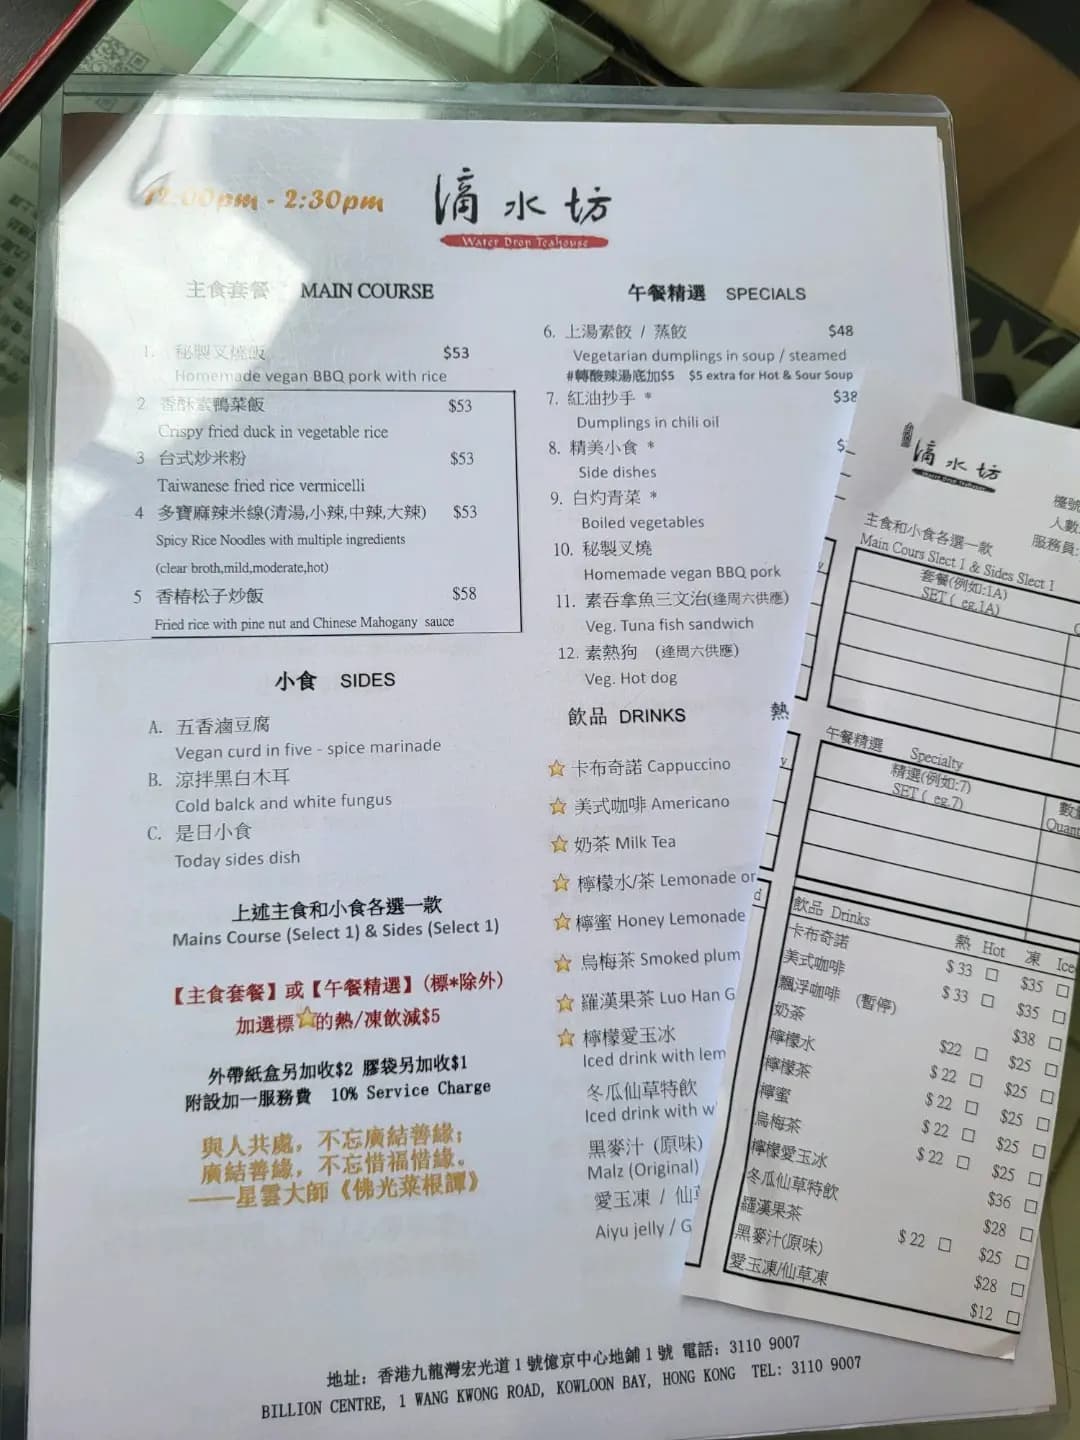 12:00pm - 2:30pm
滴水坊
Water Drop Teahouse
主食套餐 MAIN COURSE
1. 秘製叉燒飯 $53
Homemade vegan BBQ pork with rice
2 香酥素鴨菜飯 $53
Crispy fried duck in vegetable rice
3 台式炒米粉 $53
Taiwanese fried rice vermicelli
4 多寶麻辣米線(清湯,小辣,中辣,大辣) $53
Spicy Rice Noodles with multiple ingredients
(clear broth,mild,moderate,hot)
5 香椿松子炒飯 $58
Fried rice with pine nut and Chinese Mahogany sauce
小食 SIDES
A. 五香滷豆腐
Vegan curd in five - spice marinade
B. 涼拌黑白木耳
Cold balck and white fungus
C. 是日小食
Today sides dish
上述主食和小食各選一款
Mains Course (Select 1) & Sides (Select 1)
【主食套餐】或【午餐精選】(標*除外)
加選標⭐的熱/凍飲減$5
外帶紙盒另加收$2 膠袋另加收$1
附設加一服務費 10% Service Charge
與人共處，不忘廣結善緣；
廣結善緣，不忘惜福惜緣。
——星雲大師《佛光菜根譚》
午餐精選 SPECIALS
6. 上湯素餃 / 蒸餃 $48
Vegetarian dumplings in soup / steamed
#轉酸辣湯底加$5 $5 extra for Hot & Sour Soup
7. 紅油抄手 * $38
Dumplings in chili oil
8. 精美小食 *
Side dishes
9. 白灼青菜 *
Boiled vegetables
10. 秘製叉燒
Homemade vegan BBQ pork
11. 素吞拿魚三文治(逢周六供應)
Veg. Tuna fish sandwich
12. 素熱狗 (逢周六供應)
Veg. Hot dog
飲品 DRINKS 熱
⭐ 卡布奇諾 Cappuccino
⭐ 美式咖啡 Americano
⭐ 奶茶 Milk Tea
⭐ 檸檬水/茶 Lemonade or
⭐ 檸蜜 Honey Lemonade
⭐ 烏梅茶 Smoked plum
⭐ 羅漢果茶 Luo Han G
⭐ 檸檬愛玉冰
Iced drink with lem
冬瓜仙草特飲
Iced drink with w
黑麥汁 (原味)
Malz (Original)
愛玉凍 / 仙草
Aiyu jelly / G
地址：香港九龍灣宏光道1號億京中心地鋪1號 電話：3110 9007
BILLION CENTRE, 1 WANG KWONG ROAD, KOWLOON BAY, HONG KONG TEL: 3110 9007
滴水坊
Water Drop Teahouse
檯號
人數
服務員:
主食和小食各選一款
Main Cours Slect 1 & Sides Slect 1
套餐(例如:1A)
SET ( eg.1A)
午餐精選 Specialty
精選(例如:7)
SET ( eg.7)
數
Quan
飲品 Drinks 熱 Hot 凍 Ice
卡布奇諾 $33 □ $35 □
美式咖啡 $33 □ $35 □
飄浮咖啡 (暫停) $38 □
奶茶 $22 □ $25 □
檸檬水 $22 □ $25 □
檸檬茶 $22 □ $25 □
檸蜜 $22 □ $25 □
烏梅茶 $22 □ $25 □
檸檬愛玉冰 $36 □
冬瓜仙草特飲 $28 □
羅漢果茶 $22 □ $25 □
黑麥汁(原味) $28 □
愛玉凍/仙草凍 $12 □